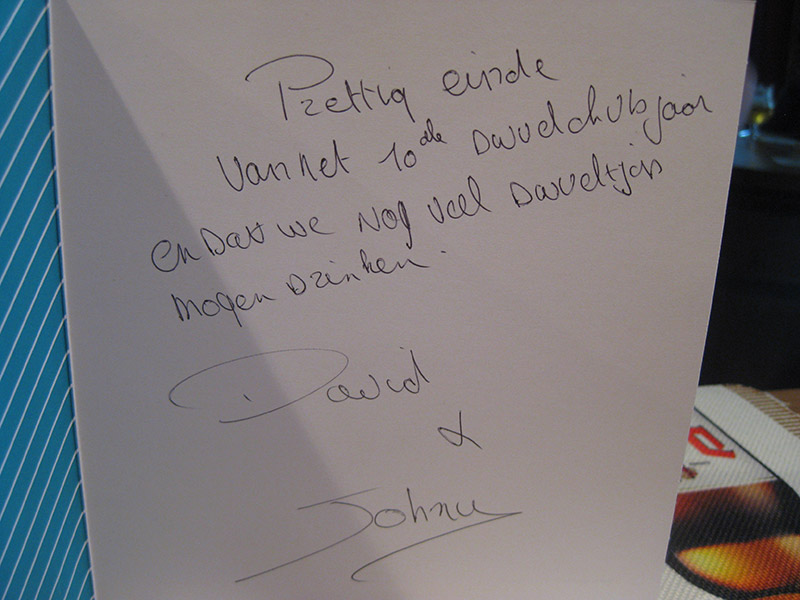 Prettig einde
van het 10de Duvelclubjaar
en Dat we Nog veel Duveltjes
mogen Drinken.
David
&
Johny